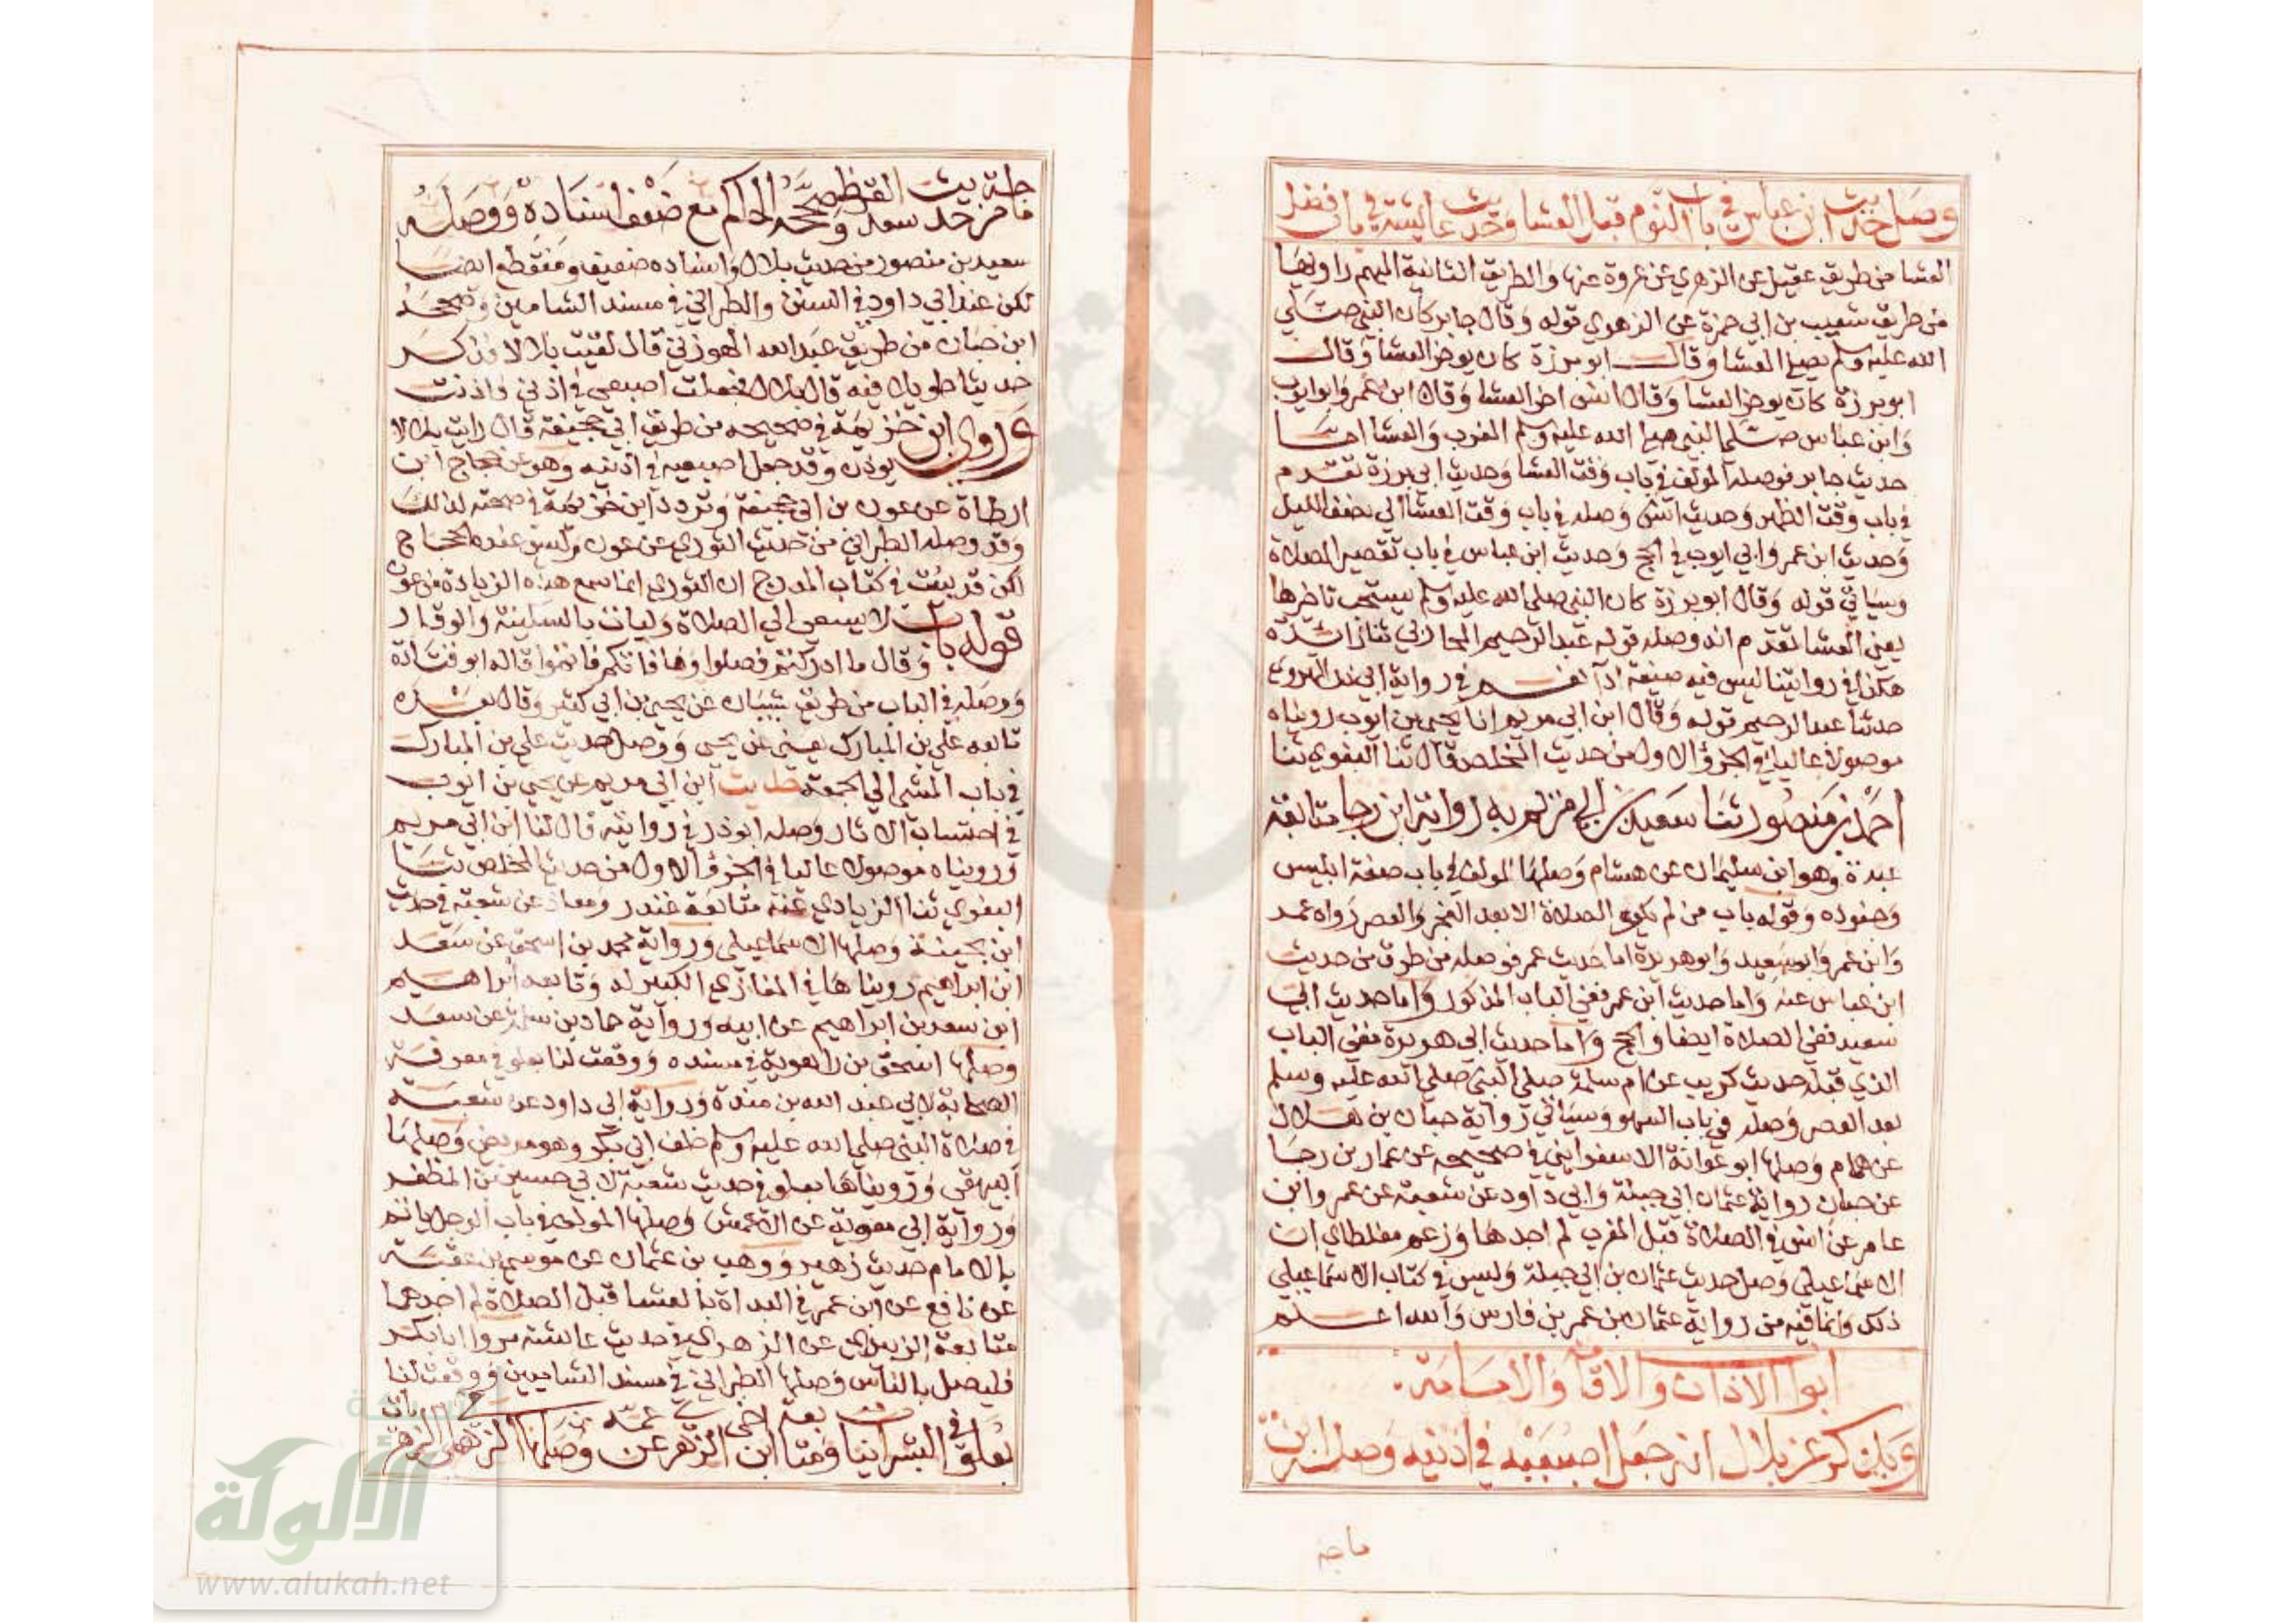 وصل حديث ابن عباس في باب النوم قبل العشا وحديث عائشة في باب فضل
العشا من طريق عقيل عن الزهري عن عروة عنها والطريق الثانية المبهم راويها
من طريق شعيب بن ابي حمزة عن الزهري قوله وقال جابر كان النبي صلي
الله عليه وسلم يصلي العشا وقال ابو برزة كان يوخر العشا وقال
ابو برزة كان يوخر العشا وقال انس اخر العشا وقال ابن عمر وابو ايوب
وابن عباس صلي النبي صلي الله عليه وسلم المغرب والعشا اما
حديث جابر فوصله المولف في باب وقت العشا وحديث ابي برزة تقدم
في باب وقت الظهر وحديث انس وصله في باب وقت العشا الي نصف الليل
وحديث ابن عمر وابي ايوب في الحج وحديث ابن عباس في باب تقصير الصلاة
وسياتي قوله وقال ابو برزة كان النبي صلي الله عليه وسلم يستحب تاخيرها
يعني العشا تقدم انه وصله قوله عبد الرحيم المحاربي ثنا زائدة
هكذا في روايتنا ليس فيه صيغة اد في رواية ابي ذر الهروي
حدثنا عبد الرحيم قوله وقال ابن ابي مريم انا يحيي بن ايوب رويناه
موصولا عاليا في الجزؤ الاول من حديث المخلص قال ثنا البغوي ثنا
احمد بن منصور ثنا سعيد بن ابي مريم به رواية ابن رجا متابعة
عبدة وهو ابن سليمان عن هشام وصلها المولف في باب صفة ابليس
وجنوده وقوله باب من لم يكره الصلاة الا بعد الفجر والعصر رواه عمر
وابن عمر وابو سعيد وابو هريرة اما حديث عمر فوصله من طرق من حديث
ابن عباس عنه واما حديث ابن عمر ففي الباب المذكور واما حديث ابي
سعيد ففي الصلاة ايضا والحج واما حديث ابي هريرة ففي الباب
الذي قبله حديث كريب عن ام سلمة صلي النبي صلي الله عليه وسلم
بعد العصر وصله في باب السهو وسياتي رواية حبان بن هلال
عن همام وصلها ابو عوانة الاسفرايني في صحيحه عن عمار بن رجا
عن حبان رواية عثمان ابي جبلة وابي داود عن شعبة عن عمر وابن
عامر عن انس في الصلاة قبل المغرب لم اجدها وزعم مغلطاي ان
الاسماعيلي وصل حديث عثمان بن ابي جبلة وليس في كتاب الاسماعيلي
ذلك وانما فيه من رواية عثمان بن عمر بن فارس والله اعلم
ابواب الاذان والاقامة والامامة
ويذكر عن بلال انه جعل اصبعيه في اذنيه وصله ابن
ماجه
ماجة من حديث سعد القرظ وصححه الحاكم مع ضعف اسناده ووصله
سعيد بن منصور من حديث بلال واسناده ضعيف ومنقطع ايضا
لكن عند ابي داود في السنن والطبراني في مسند الشاميين وصححه
ابن حبان من طريق عبد الله الهوزني قال لقيت بلالا فذكر
حديثا طويلا فيه قال بلال فجعلت اصبعي في اذني واذنت
وروي ابن خزيمة في صحيحه من طريق ابي جحيفة قال رايت بلالا
يوذن وقد جعل اصبعيه في اذنيه وهو عن حجاج ابن
ارطاة عن عون بن ابي جحيفة وتردد ابن خزيمة في صحته لذلك
وقد وصله الطبراني من حديث الثوري عن عون وليس عنده الحجاج
لكن قد بينت في كتاب المدرج ان الثوري انما سمع هذه الزيادة من عون
قوله باب لا يسعي الي الصلاة وليات بالسكينة والوقار
وقال ما ادركتم فصلوا وما فاتكم فاتموا قاله ابو قتادة
ووصله في الباب من طريق شيبان عن يحيي بن ابي كثير وقال بعده
تابعه علي بن المبارك يعني عن يحيي ووصل حديث علي بن المبارك
في باب المشي الي الجمعة حديث ابن ابي مريم عن يحيي بن ايوب
في احتساب الاثار وصله ابو ذر في روايته قال لنا ابن ابي مريم
ورويناه موصولا عاليا في الجزؤ الاول من حديث المخلص ثنا
البغوي ثنا الزيادي عنه متابعة غندر ومعاذ عن شعبة في حديث
ابن بحينة وصلها الاسماعيلي ورواية محمد بن اسحق عن سعد
ابن ابراهيم رويناها في المغازي الكبير له وتابعه ابراهيم
ابن سعد بن ابراهيم عن ابيه ورواية حماد بن سلمة عن سعد
وصلها اسحق بن راهوية في مسنده ووقعت لنا بعلو في معرفة
الصحابة لابي عبد الله بن مندة ورواية ابي داود عن شعبة
في صلاة النبي صلي الله عليه وسلم خلف ابي بكر وهو مريض وصلها
البيهقي ورويناها بعلو في حديث شعبة لابي حسين بن المظفر
ورواية ابي معوية عن الاعمش وصلها المولف في باب الرجل ياتم
بالامام حديث زهير ووهب بن عثمان عن موسي بن عقبة
عن نافع عن ابن عمر في البداة بالعشا قبل الصلاة لم اجدهما
متابعة الزبيدي عن الزهري في حديث عائشة مروا ابا بكر
فليصل بالناس وصلها الطبراني في مسند الشاميين ووقعت لنا
بعلو في البشرانيات ومتابعة ابن اخي الزهري عن عمه وصلها
الألوكة
www.alukah.net